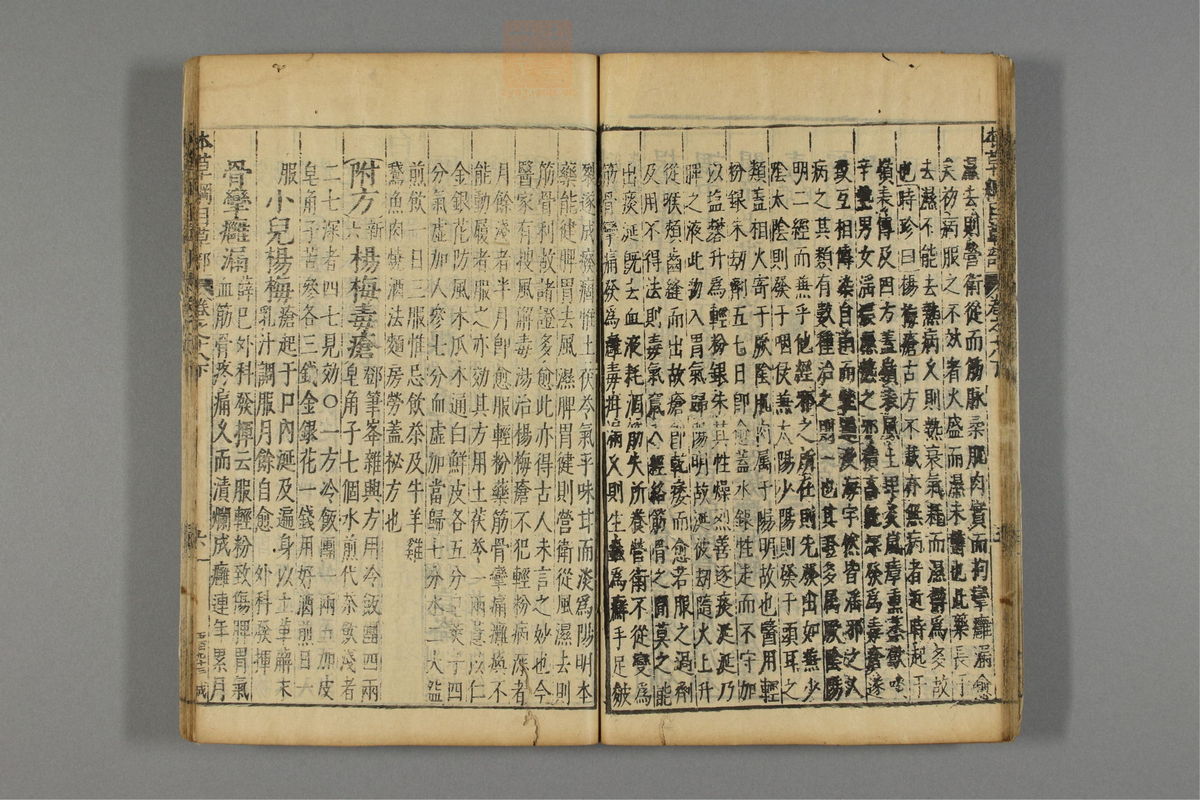 本草綱目草部 卷之十八下
濕去則營衛從而筋脉柔肌肉實而拘攣癰漏愈
矣初病服之不效者火盛而濕未鬱也此藥長于
去濕不能去熱病久則熱衰氣耗而濕鬱爲多故
也時珍曰楊梅瘡古方不載亦無病者近時起于
嶺表傳及四方蓋嶺表風土卑炎嵐瘴熏蒸飲啖
辛熱男女淫猥濕熱之邪積畜既深發爲毒瘡遂
致互相傳染自南而北遍及海宇然皆淫邪之人
病之其類有數種治之則一也其證多属厥陰陽
明二經而兼乎他經邪之所在則先發出如兼少
陰太陰則發于咽㑋兼太陽少陽則發于頭耳之
類蓋相火寄于厥陰肌肉属于陽明故也醫用輕
粉銀朱劫劑五七日卽愈蓋水銀性走而不守加
以塩礬升爲輕粉銀朱其性燥烈善逐痰涎涎乃
脾之液此物入胃氣歸陽明故涎被劫隨火上升
從喉頰齒縫而出故瘡卽乾痿而愈若服之過劑
及用不得法則毒氣竄入經絡筋骨之間莫之能
出痰涎既去血液耗涸筋失所養營衛不從變爲
筋骨攣痛發爲癰毒疳漏久則生蟲爲癬手足皴
裂遂成癈痼惟土茯苓氣乎味甘而淡爲陽明本
藥能健脾胃去風濕脾胃健則營衛從風濕去則
筋骨利故諸證多愈此亦得古人未言之妙也今
醫家有搜風解毒湯治楊梅瘡不犯輕粉病深者
月餘淺者半月卽愈服輕粉藥筋骨攣痛癱瘓不
能動履者服之亦効其方用土茯苓一兩薏苡仁
金銀花防風木瓜木通白鮮皮各五分皂莢子四
分氣虛加人參七分血虛加當歸七分水二大盌
煎飲一日三服惟忌飲茶及牛羊雞
鵞魚肉燒酒法麵房勞蓋祕方也
附方新六楊梅毒瘡鄧筆峯雜興方用冷飯團四兩皂角子七個水煎代茶飲淺者
二七深者四七見効〇一方冷飯團一兩五加皮
皂角子苦參各三錢金銀花一錢用好酒煎日一
服小兒楊梅瘡起于口內延及遍身以土萆薢末乳汁調服月餘自愈外科發揮
骨攣癰漏薛巳外科發揮云服輕粉致傷脾胃氣血筋骨疼痛久而潰爛成癰連年累月
本草綱目草部 卷之十八下 六